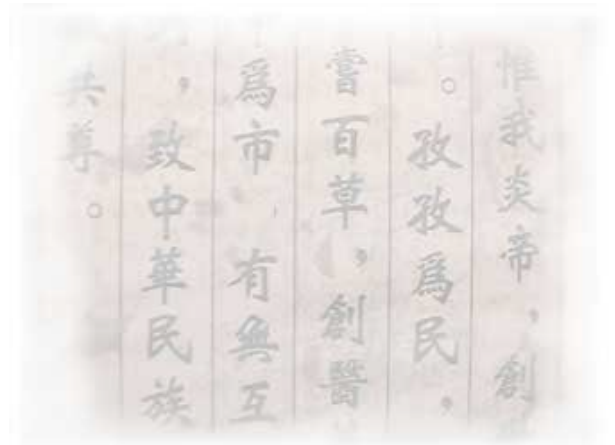 惟我炎帝，創
。孜孜爲民，
嘗百草，創醫
爲市，有無互
，致中華民族
共尊。